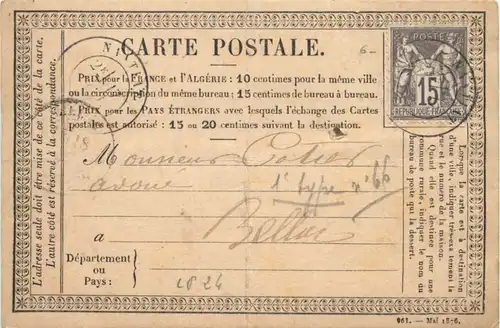 CARTE POSTALE.
6-
POSTE
15
PRIX pour la FRANCE et l'ALGÉRIE: 10 centimes pour la même ville
ou la circonscription du même bureau; 15 centimes de bureau à bureau.
PRIX pour les PAYS ÉTRANGERS avec lesquels l'échange des Cartes
postales est autorisé: 15 ou 20 centimes suivant la destination.
Monsieur
avoué
1er type n° 66
à
Bellac
Département
ou
Pays:
CP 24
L'adresse seule doit être mise de ce côté de la carte.
L'autre côté est réservé à la correspondance.
Lorsque la carte est à destination
d'une ville, indiquer très-exactement la
rue et le numéro de la maison.
Quand elle est destinée pour une
commune rurale, indiquer le nom du
bureau de poste qui la dessert.
961. — Mai 1876.